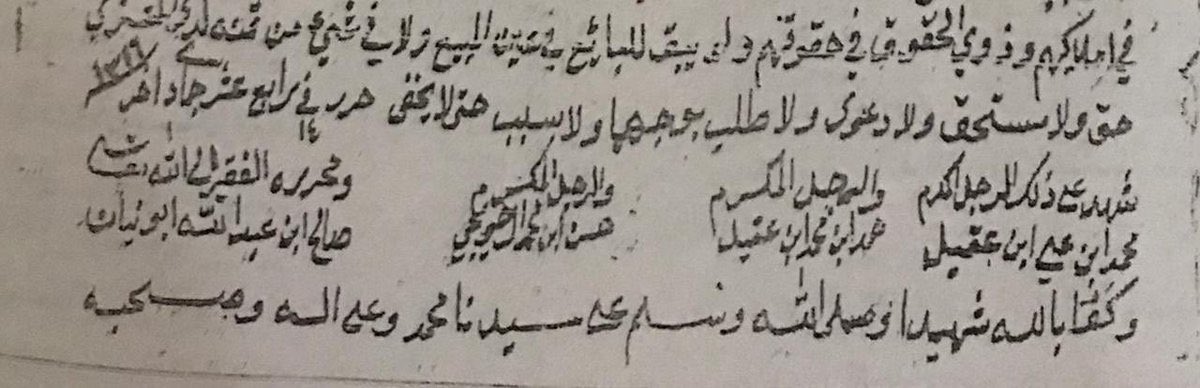 في املاكهم وذوي الحقوق في حقوقهم ولم يبق للبائع في عين المبيع ولا في شيء من ثمنه لدى المشتري
حق ولا مستحق ولا دعوى ولا طلب بوجهها ولا سبب حتى لا يخفى حرر في رابع عشر جماد اخر ١٤ ١٣١٦
شهد على ذلك الرجل المكرم والرجل المكرم والرجل المكرم ومحرره الفقير الى الله تعالى
محمد ابن علي ابن عقيل محمد ابن عقيل حسن ابن محمد صالح ابن عبد الله ابو نيان
وكفا بالله شهيدا وصلى الله وسلم على سيدنا محمد وعلى اله وصحبه